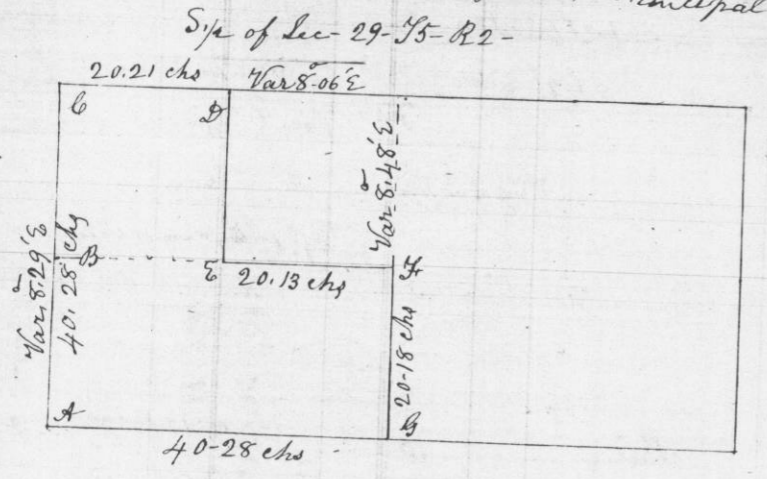 S 1/2 of Sec - 29 - T5 - R2 -
20.21 chs
Var 8°.06'E
C
D
Var. 8°.48'E
Var. 8°.29'E
40.28 chs
B
E
20.13 chs
F
20-18 chs
A
G
40-28 chs